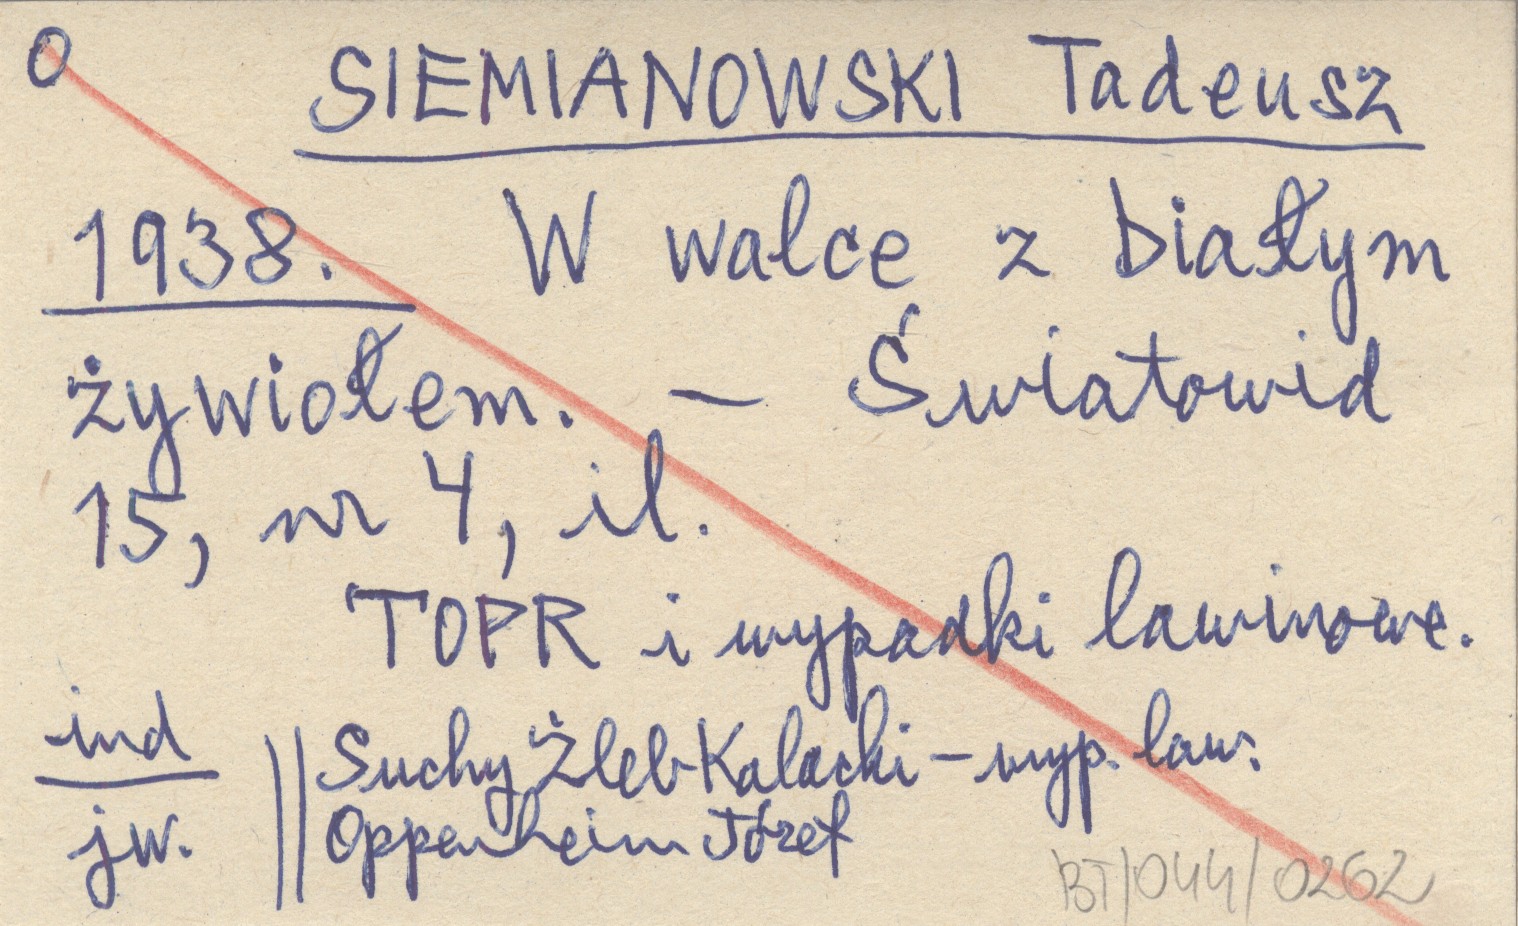 O
SIEMIANOWSKI Tadeusz
1938. W walce z białym
żywiołem. — Światowid
15, nr 4, il.
TOPR i wypadki lawinowe.
ind || Suchy Żleb Kalacki – wyp. law.
jw. Oppenheim Józef
BT/044/0262